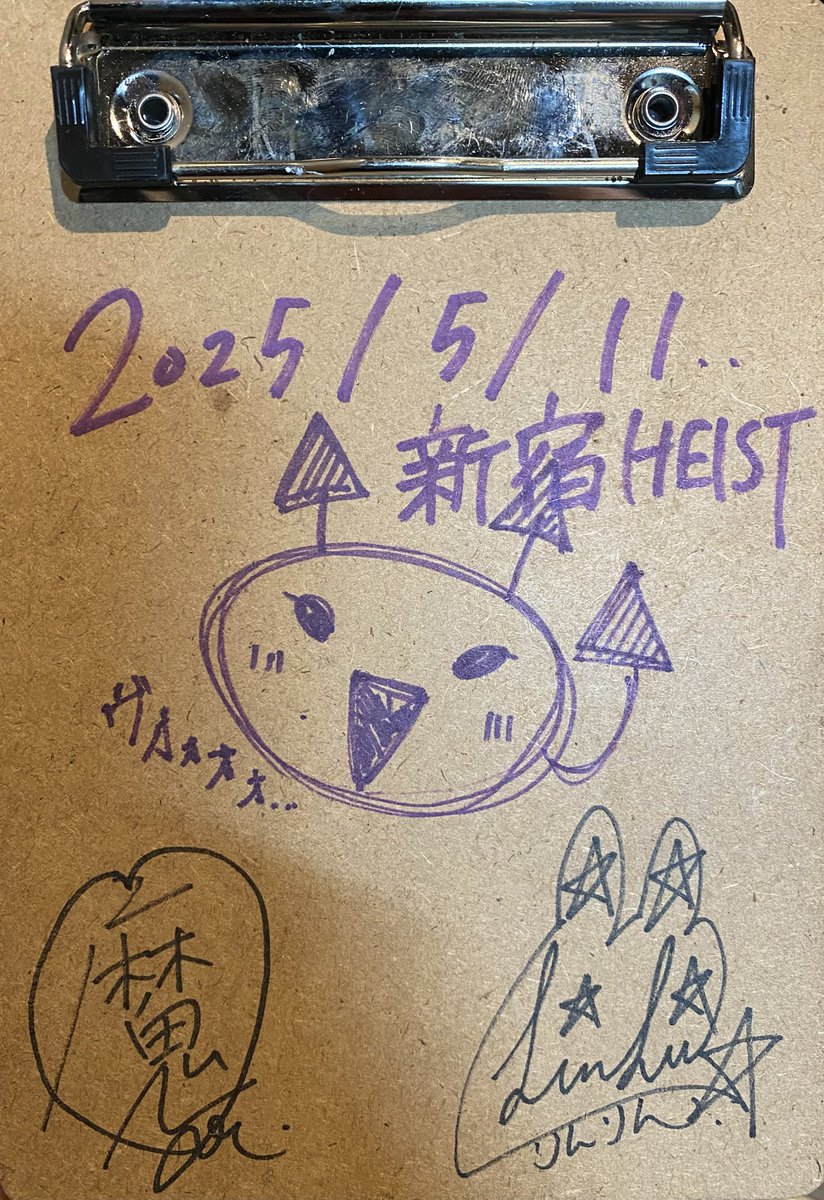 2025/5/11..
新宿HEIST
ヴォォォォ...
魔
LinLin
りんりん